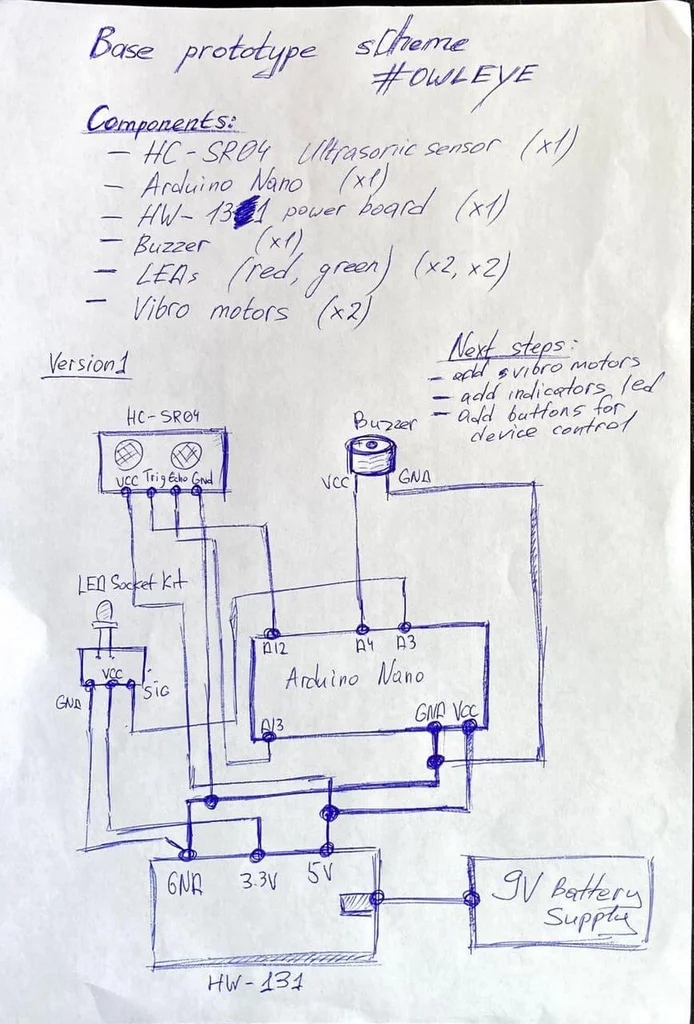 Base prototype scheme
#OWLEYE
Components:
— HC-SR04 Ultrasonic sensor (x1)
— Arduino Nano (x1)
— HW-131 power board (x1)
— Buzzer (x1)
— LEDs (red, green) (x2, x2)
— Vibro motors (x2)
Version 1
Next steps:
— add vibro motors
— add indicators led
— add buttons for
device control
HC-SR04
VCC Trig Echo Gnd
Buzzer
VCC GND
LED Socket Kit
VCC
GND SIG
A12 A4 A3
Arduino Nano
A13 GND VCC
GND 3.3V 5V
HW-131
9V Battery
Supply